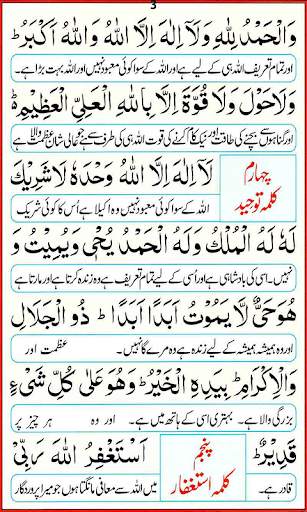 3
وَالْحَمْدُ لِلّٰهِ وَلَآ اِلٰهَ اِلَّا اللّٰهُ وَاللّٰهُ اَكْبَرُ ؕ
اور تمام تعریف اللہ ہی کے لیے ہے اور اللہ کے سوا کوئی معبود نہیں اور اللہ بہت بڑا ہے۔
وَلَا حَوْلَ وَلَا قُوَّةَ اِلَّا بِاللّٰهِ الْعَلِيِّ الْعَظِيْمِ ؕ
اور گناہوں سے بچنے کی طاقت اور نیک کام کرنے کی قوت اللہ ہی کی طرف سے ہے جو عالی شان عظمت والا ہے
چہارم
کلمہ توحید
لَآ اِلٰهَ اِلَّا اللّٰهُ وَحْدَهٗ لَا شَرِيْكَ
اللہ کے سوا کوئی معبود نہیں وہ اکیلا ہے اُس کا کوئی شریک
لَهٗ لَهُ الْمُلْكُ وَلَهُ الْحَمْدُ يُحْيٖ وَيُمِيْتُ وَ
نہیں۔ اسی کی بادشاہی ہے اور اُسی کے لیے تمام تعریف ہے وہ زندہ کرتا ہے اور مارتا ہے
هُوَ حَيٌّ لَّا يَمُوْتُ اَبَدًا اَبَدًا ؕ ذُو الْجَلَالِ
اور وہ ہمیشہ ہمیشہ کے لیے زندہ ہے وہ مرے گا نہیں۔ عظمت اور
وَالْاِكْرَامِ ؕ بِيَدِهِ الْخَيْرُ ؕ وَهُوَ عَلٰى كُلِّ شَيْءٍ
بزرگی والا ہے۔ بہتری اسی کے ہاتھ میں ہے۔ اور وہ ہر چیز پر
قَدِيْرٌ ؕ
قادر ہے۔
پنجم
کلمہ استغفار
اَسْتَغْفِرُ اللّٰهَ رَبِّيْ
میں اللہ سے معافی مانگتا ہوں جو میرا پروردگار